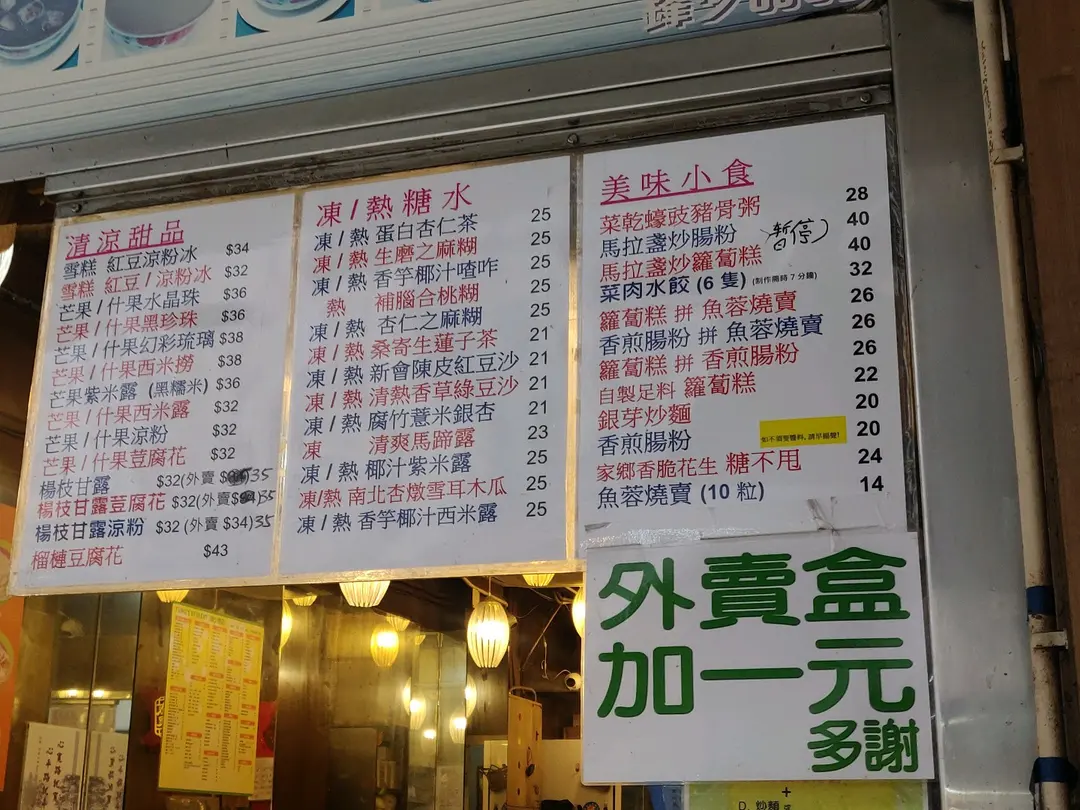 清涼甜品
雪糕 紅豆涼粉冰 $34
雪糕 紅豆/涼粉冰 $32
芒果/什果水晶珠 $36
芒果/什果黑珍珠 $36
芒果/什果幻彩琉璃 $38
芒果/什果西米撈 $38
芒果紫米露 (黑糯米) $36
芒果/什果西米露 $32
芒果/什果涼粉 $32
芒果/什果荳腐花 $32
楊枝甘露 $32(外賣 35
楊枝甘露荳腐花 $32(外賣 35
楊枝甘露涼粉 $32(外賣 $34)35
榴槤豆腐花 $43
凍/熱糖水
凍/熱 蛋白杏仁茶 25
凍/熱 生磨之麻糊 25
凍/熱 香芋椰汁喳咋 25
熱 補腦合桃糊 25
凍/熱 杏仁之麻糊 25
凍/熱 桑寄生蓮子茶 21
凍/熱 新會陳皮紅豆沙 21
凍/熱 清熱香草綠豆沙 21
凍/熱 腐竹薏米銀杏 21
凍 清爽馬蹄露 23
凍/熱 椰汁紫米露 25
凍/熱 南北杏燉雪耳木瓜 25
凍/熱 香芋椰汁西米露 25
美味小食
菜乾蠔豉豬骨粥 28
馬拉盞炒腸粉 暫停) 40
馬拉盞炒籮蔔糕 40
菜肉水餃 (6 隻) (制作需時 7 分鐘) 32
籮蔔糕 拼 魚蓉燒賣 26
香煎腸粉 拼 魚蓉燒賣 26
籮蔔糕 拼 香煎腸粉 26
自製足料 籮蔔糕 22
銀芽炒麵 20
香煎腸粉 20
家鄉香脆花生 糖不甩 24
魚蓉燒賣 (10 粒) 14
外賣盒
加一元
多謝
D. 炒麵